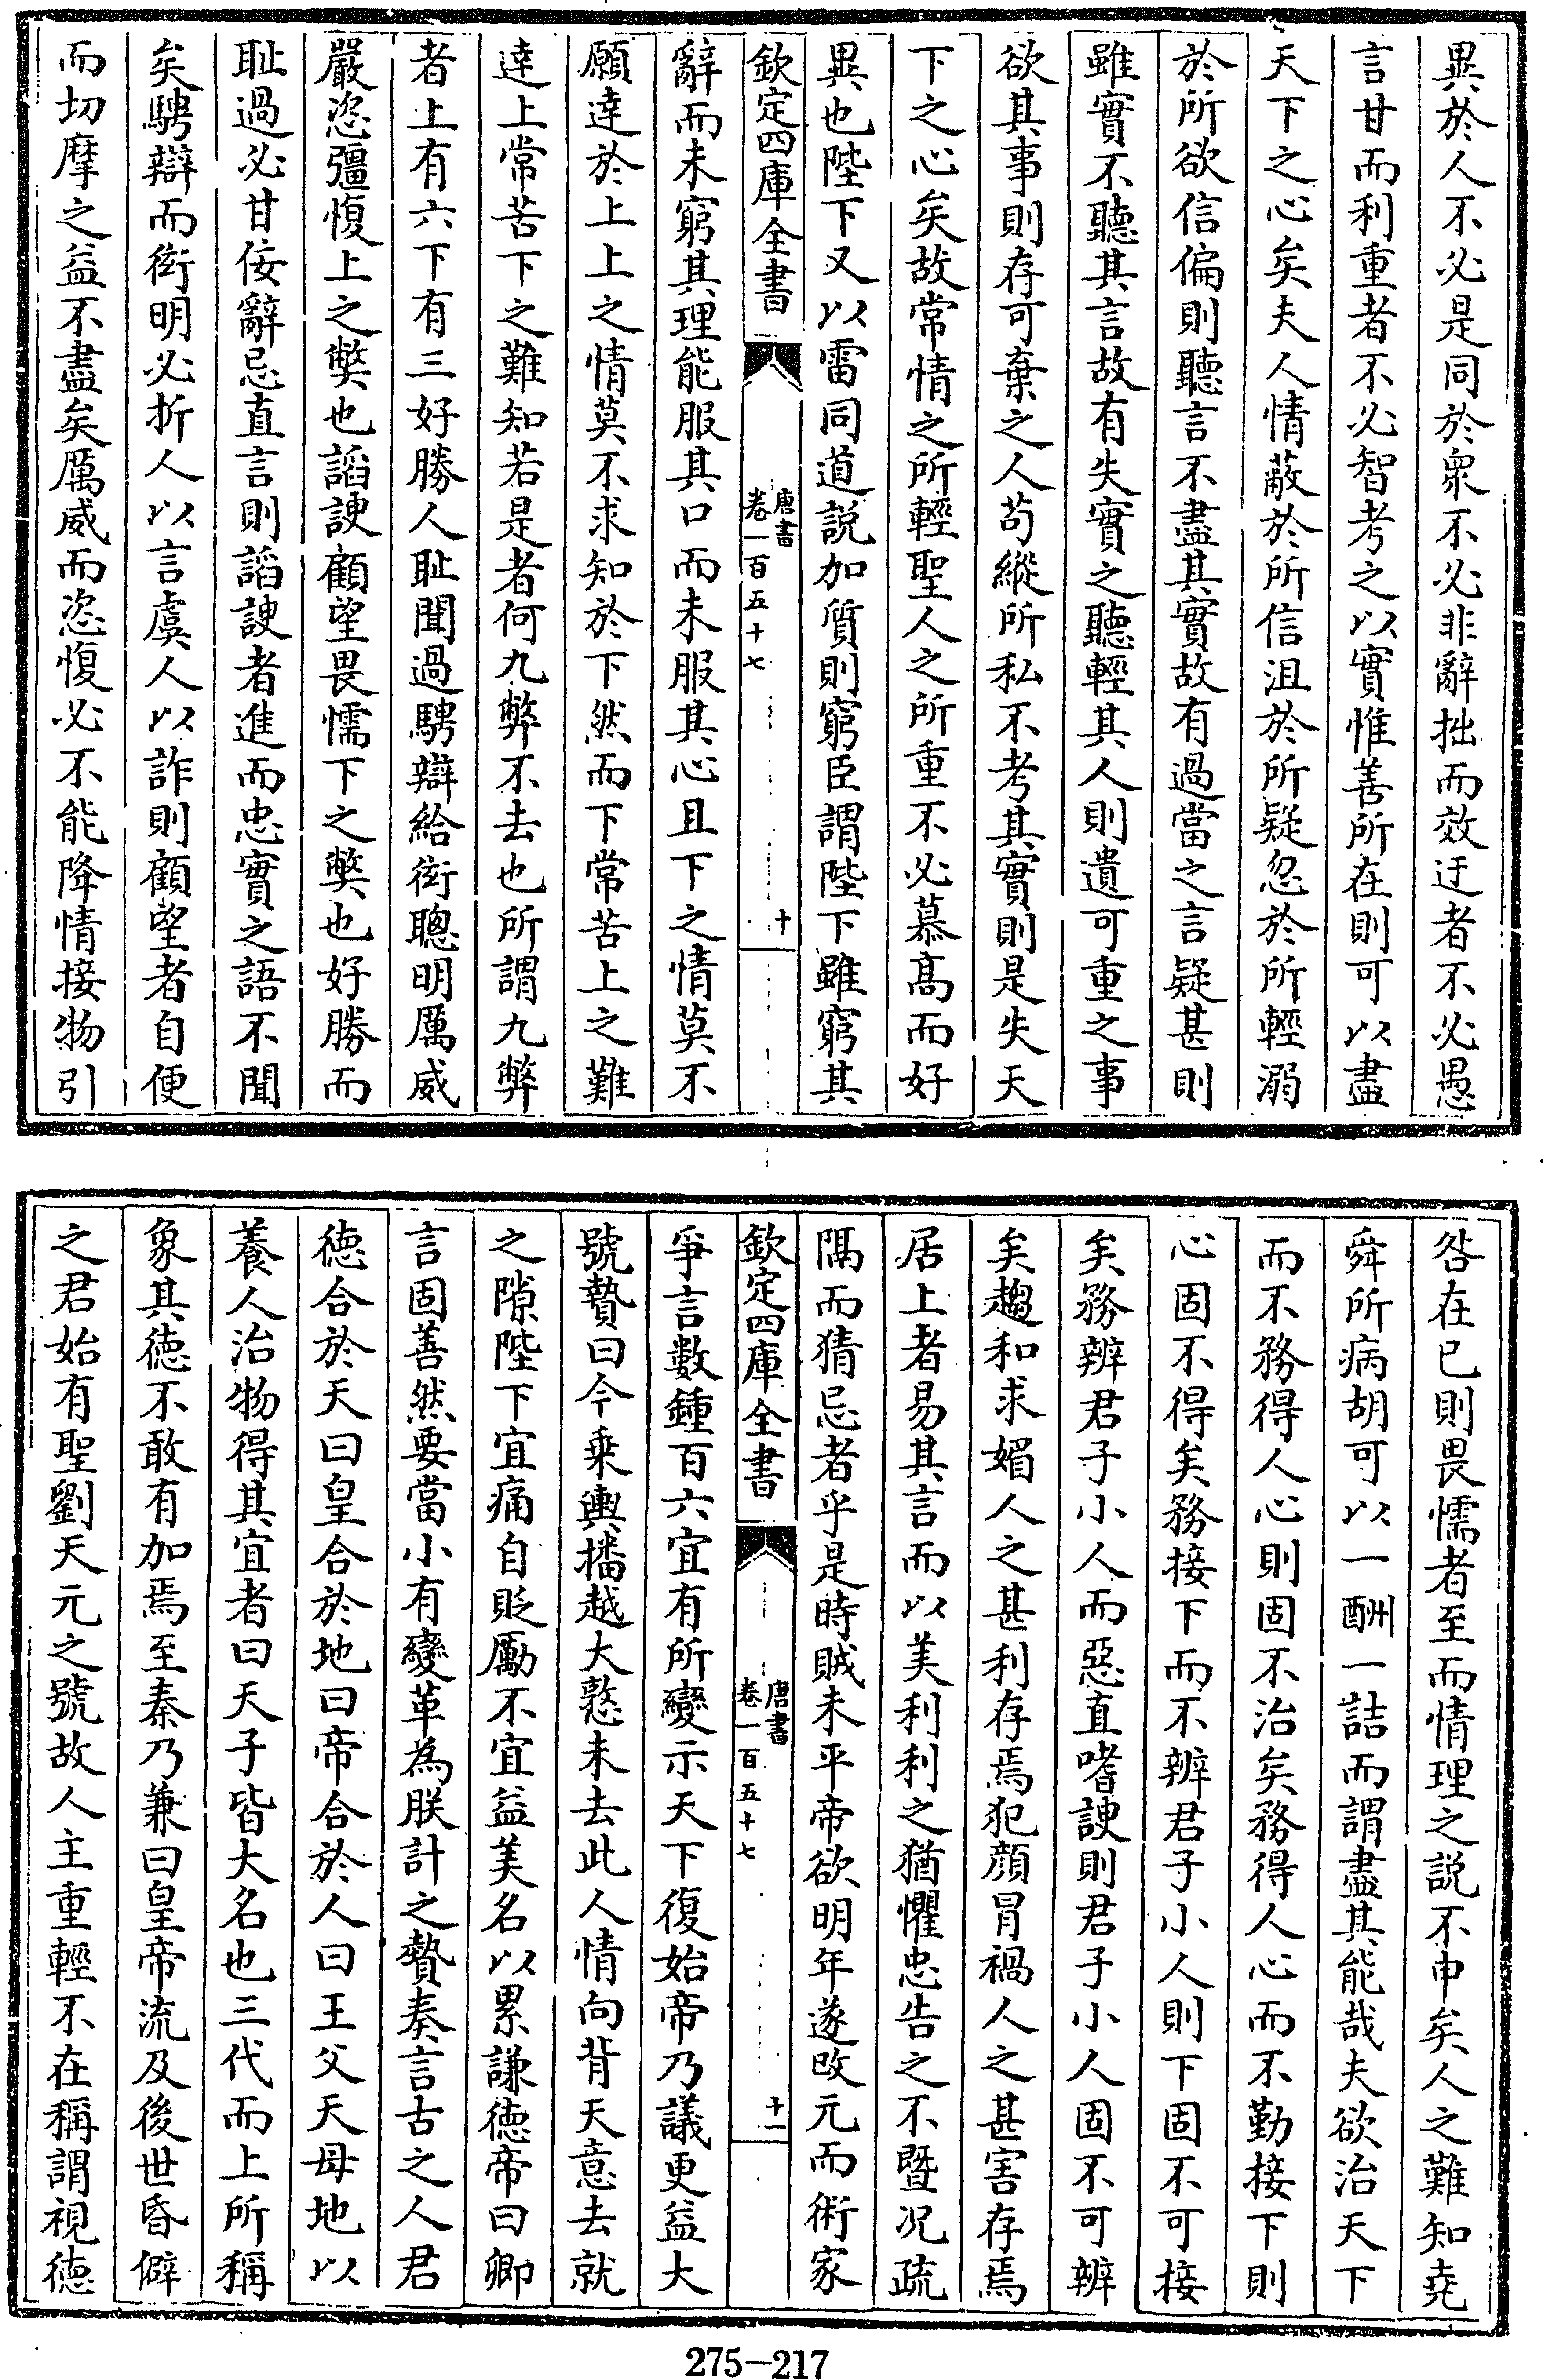 異於人不必是同於衆不必非辭拙而效迂者不必愚
言甘而利重者不必智考之以實惟善所在則可以盡
天下之心矣夫人情蔽於所信沮於所疑忽於所輕溺
於所欲信偏則聽言不盡其實故有過當之言疑甚則
雖實不聽其言故有失實之聽輕其人則遺可重之事
欲其事則存可棄之人苟縱所私不考其實則是失天
下之心矣故常情之所輕聖人之所重不必慕髙而好
異也陛下又以雷同道説加質則窮臣謂陛下雖窮其
欽定四庫全書
唐書
卷一百五十七
十
辭而未窮其理能服其口而未服其心且下之情莫不
願達於上上之情莫不求知於下然而下常苦上之難
達上常苦下之難知若是者何九弊不去也所謂九弊
者上有六下有三好勝人耻聞過騁辯給衒聰明厲威
嚴恣彊愎上之獘也謟諛顧望畏懦下之獘也好勝而
耻過必甘佞辭忌直言則謟諛者進而忠實之語不聞
矣騁辯而衒明必折人以言虞人以詐則顧望者自便
而切摩之益不盡矣厲威而恣愎必不能降情接物引
咎在已則畏懦者至而情理之説不申矣人之難知堯
舜所病胡可以一酬一詰而謂盡其能哉夫欲治天下
而不務得人心則固不治矣務得人心而不勤接下則
心固不得矣務接下而不辨君子小人則下固不可接
矣務辨君子小人而惡直嗜諛則君子小人固不可辨
矣趨和求媚人之甚利存焉犯顔冒禍人之甚害存焉
居上者易其言而以美利利之猶懼忠告之不暨况疏
隔而猜忌者乎是時賊未平帝欲明年遂改元而術家
欽定四庫全書
唐書
卷一百五十七
十一
爭言數鍾百六宜有所變示天下復始帝乃議更益大
號贄曰今乘輿播越大憝未去此人情向背天意去就
之隙陛下宜痛自貶勵不宜益美名以累謙徳帝曰卿
言固善然要當小有變革為朕計之贄奏言古之人君
徳合於天曰皇合於地曰帝合於人曰王父天母地以
養人治物得其宜者曰天子皆大名也三代而上所稱
象其徳不敢有加焉至秦乃兼曰皇帝流及後世昏僻
之君始有聖劉天元之號故人主重輕不在稱謂視徳
275-217